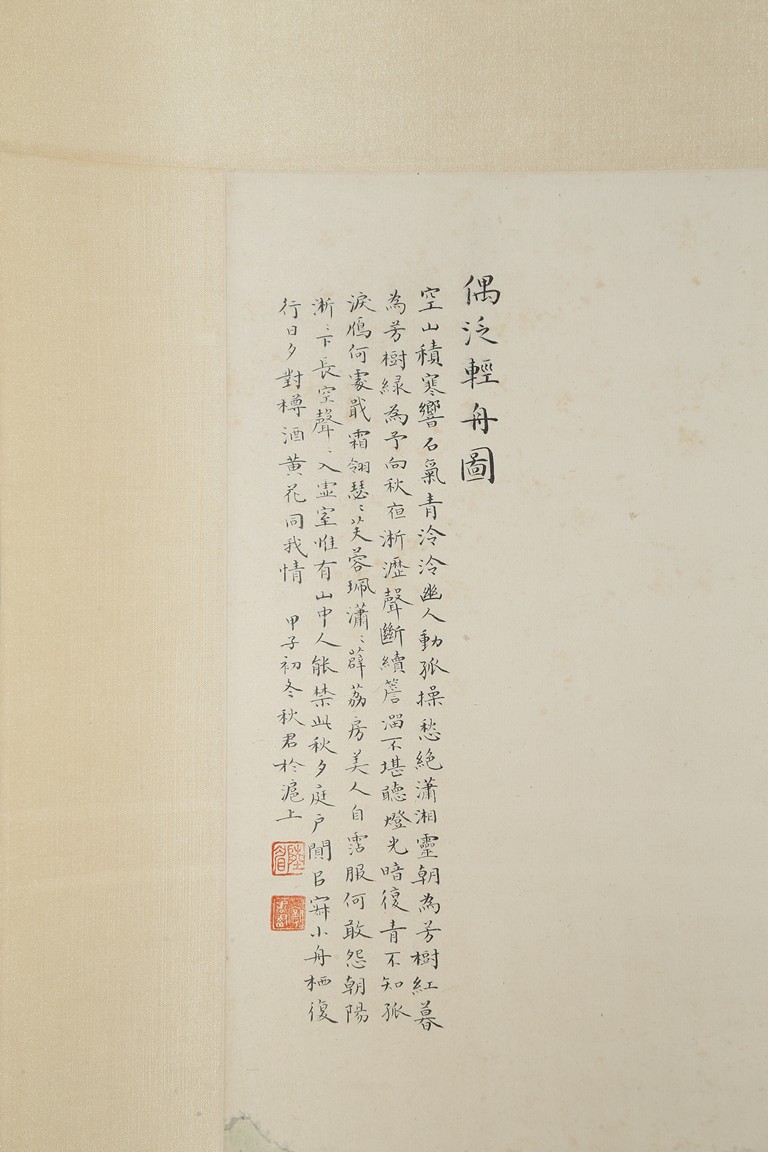 偶泛輕舟圖
空山積寒響石氣青泠泠幽人動孤操愁絕瀟湘靈朝為芳樹紅暮
為芳樹緑為予向秋夜淅瀝聲斷續簷溜不堪聽燈光暗復青不知孤
淚鴈何處戢霜翎瑟〻芙蓉珮瀟〻薜荔房美人自露服何敢怨朝陽
淅〻下長空聲〻入虛室惟有山中人能禁此秋夕庭戶闃邑寂小舟栖復
行日夕對樽酒黄花同我情 甲子初冬秋君於滬上